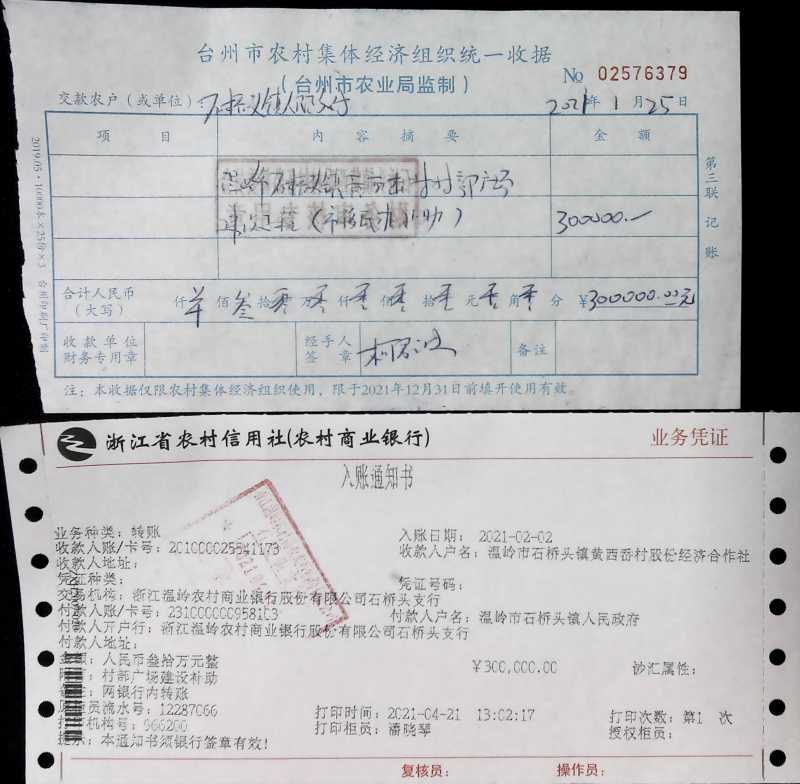 台州市农村集体经济组织统一收据
(台州市农业局监制)
No 02576379
交款农户(或单位):石桥头镇人民政府
2021年1月25日
项 目 内 容 摘 要 金 额
温岭市石桥头镇黄西岙村村部广场
建设工程(市移民办补助) 300000.—
合计人民币(大写) 仟 佰叁拾零万零仟零佰零拾零元零角零分 ¥300000.00元
收款单位财务专用章
经手人签章
备注
注:本收据仅限农村集体经济组织使用,限于2021年12月31日前填开使用有效。
第三联 记账
2019/05·10000本×25份×3 台州印刷厂印制
浙江省农村信用社(农村商业银行) 业务凭证
入账通知书
业务种类:转账 入账日期: 2021-02-02
收款人账/卡号:201000025541173 收款人户名:温岭市石桥头镇黄西岙村股份经济合作社
收款人地址:
凭证种类: 凭证号码:
交易机构:浙江温岭农村商业银行股份有限公司石桥头支行
付款人账/卡号:231000000958103 付款人户名:温岭市石桥头镇人民政府
付款人开户行:浙江温岭农村商业银行股份有限公司石桥头支行
付款人地址:
金额:人民币叁拾万元整 ¥300,000.00 钞汇属性:
村部广场建设补助
网银行内转账
流水号:12287066 打印时间:2021-04-21 13:02:17 打印次数:第1 次
机构号:966200 打印柜员:潘晓琴 授权柜员:
提示:本通知书须银行签章有效!
复核员: 操作员: